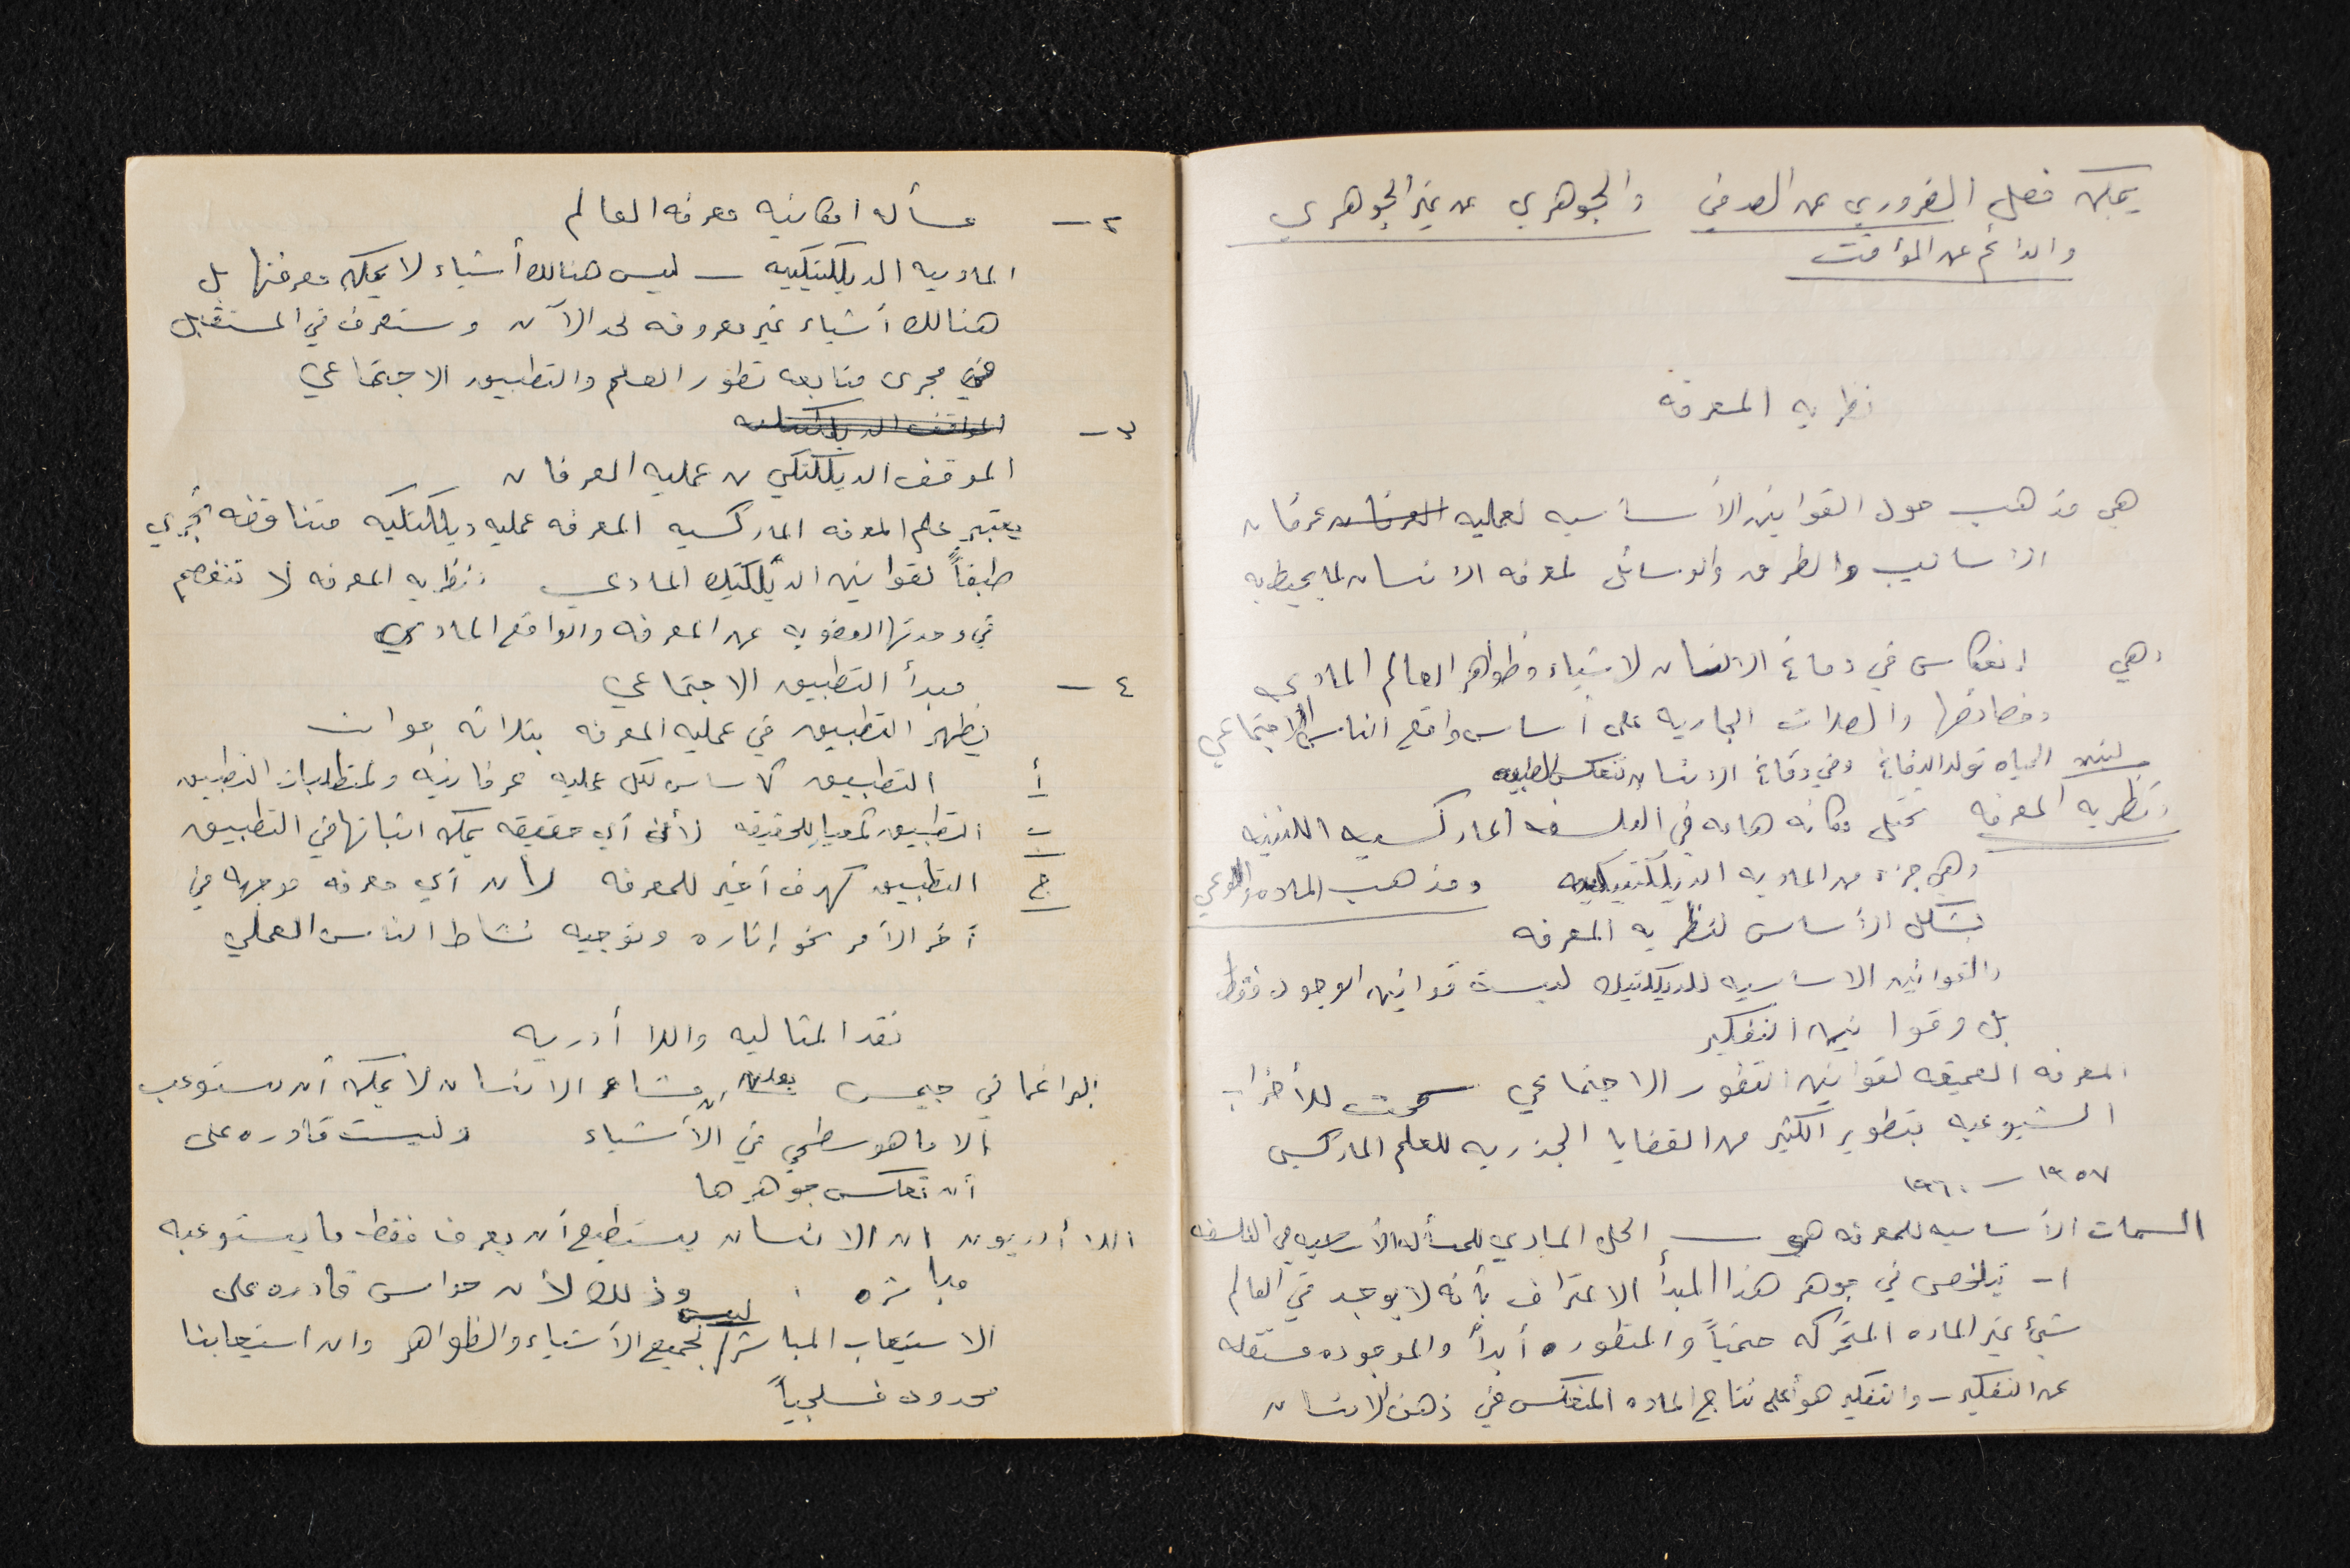 يمكن فصل الضروري عن الصدفي والجوهري عن غير الجوهري
والدائم عن المؤقت
نظريه المعرفه
هي مذهب حول القوانين الأساسيه لعمليه العرفان عرفان
الأساليب والطرق والوسائل لمعرفه الانسان لما يحيط به
وهي إنعكاس في دماغ الانسان لاشياء وظواهر العالم المادي
وخصائصها والصلات الجاريه على أساس واقع الناس الاجتماعي
لينين الحياه تولد الدماغ وفي دماغ الانسان تنعكس الطبيعه
ونظريه المعرفه تحتل مكانه هامه في الفلسفه الماركسيه اللينينيه
وهي جزء من الماديه الديلكتيكيه ومذهب الماده والوعي
يشكل الأساس لنظريه المعرفه
والقوانين الاساسيه للديلكتيك ليست قوانين الوجود فقط
بل وقوانين التفكير
المعرفه العميقه لقوانين التطور الاجتماعي سمحت للأحزاب
الشيوعيه بتطوير الكثير من القضايا الجذريه للعلم الماركسي
١٩٥٧ – ١٩٦٠
السمات الأساسيه للمعرفه هي – الحل المادي للمسأله الأساسيه في الفلسفه
١- يتلخص في جوهر هذا المبدأ الاعتراف بأنه لا يوجد في العالم
شيئ غير الماده المتحركه حتمياً والمتطوره أبداً والموجوده مستقله
عن التفكير – والتفكير هو أعلى نتاج الماده المنعكس في ذهن الانسان
٢ – مسأله امكانيه معرفه العالم
الماديه الديلكتيكيه – ليس هنالك أشياء لا يمكن معرفتها بل
هنالك أشياء غير معروفه لحد الآن وستعرف في المستقبل
في مجرى متابعه تطور العلم والتطبيق الاجتماعي
٣ – الموقف الديلكتيكي
الموقف الديلكتكي من عمليه العرفان
يعتبر علم المعرفه الماركسيه المعرفه عمليه ديلكتكيه متناقضه تجري
طبقاً لقوانين الديلكتيك المادي ونظريه المعرفه لا تنفصم
في وحدتها العضويه عن المعرفه والواقع المادي
٤ – مبدأ التطبيق الاجتماعي
يظهر التطبيق في عمليه المعرفه بثلاثه جوانب
أ التطبيق كاساس لكل عمليه عرفانيه ولمتطلبات التطبيق
ب التطبيق كمعيار للحقيقه لأن أي حقيقه يمكن اثباتها في التطبيق
ج التطبيق كهدف أخير للمعرفه لأن أي معرفه موجهه في
آخر الأمر نحو إثاره وتوجيه نشاط الناس العملي
نقد المثاليه واللا أدريه
البراغماتي جيمس يعلن ان مشاعر الانسان لا يمكن أن تستوعب
الا ما هو سطحي في الأشياء وليست قادره على
أن تعكس جوهرها
اللا أدريون ان الانسان يستطيع أن يعرف فقط ما يستوعبه
مباشره . وذلك لأن حواس ليست قادره على
الاستيعاب المباشر لجميع الأشياء والظواهر وان استيعابنا
محدود فسلجياً